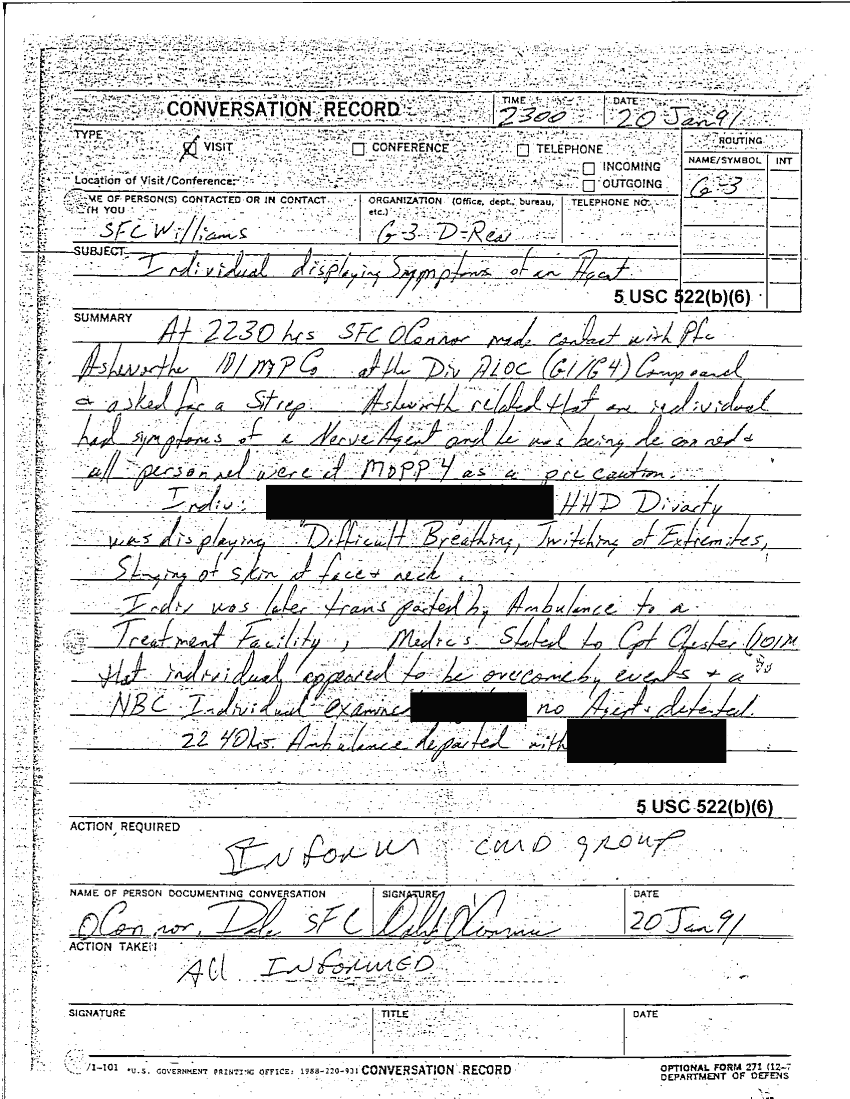 CONVERSATION RECORD
TIME
2300
DATE
20 Jan 91
TYPE
VISIT
CONFERENCE
TELEPHONE
INCOMING
OUTGOING
ROUTING
NAME/SYMBOL INT
G-3
Location of Visit/Conference:
ME OF PERSON(S) CONTACTED OR IN CONTACT
TH YOU
SFC Williams
ORGANIZATION (Office, dept., bureau,
etc.)
G-3 D-Rear
TELEPHONE NO.
SUBJECT
Individual displaying Symptoms of an Agent
5 USC 522(b)(6)
SUMMARY
At 2230 hrs SFC OConnor made contact with Pfc
Ashworthe 101 MP Co at the Div ALOC (G1/G4) Compound
& asked for a Sitrep. Ashworth related that an individual
had symptoms of a Nerve Agent and he was being deconned &
all personnel were at MOPP 4 as a precaution.
Indiv: HHD Divarty
was displaying Difficult Breathing, Twitching of Extremites,
Stinging of skin of face & neck.
Indiv was later transported by Ambulance to a
Treatment Facility, Medics Stated to Cpt Chester (101M
that individual appeared to be overcome by events & a
NBC Individual examined no Agents detected.
2240 hrs. Ambulance departed with
5 USC 522(b)(6)
ACTION REQUIRED
INFORM CMD GROUP
NAME OF PERSON DOCUMENTING CONVERSATION
OConnor, Dale SFC
SIGNATURE
DATE
20 Jan 91
ACTION TAKEN
All INFORMED
SIGNATURE
TITLE
DATE
/1-101
*U.S. GOVERNMENT PRINTING OFFICE: 1988-220-931
CONVERSATION RECORD
OPTIONAL FORM 271 (12-7
DEPARTMENT OF DEFENS